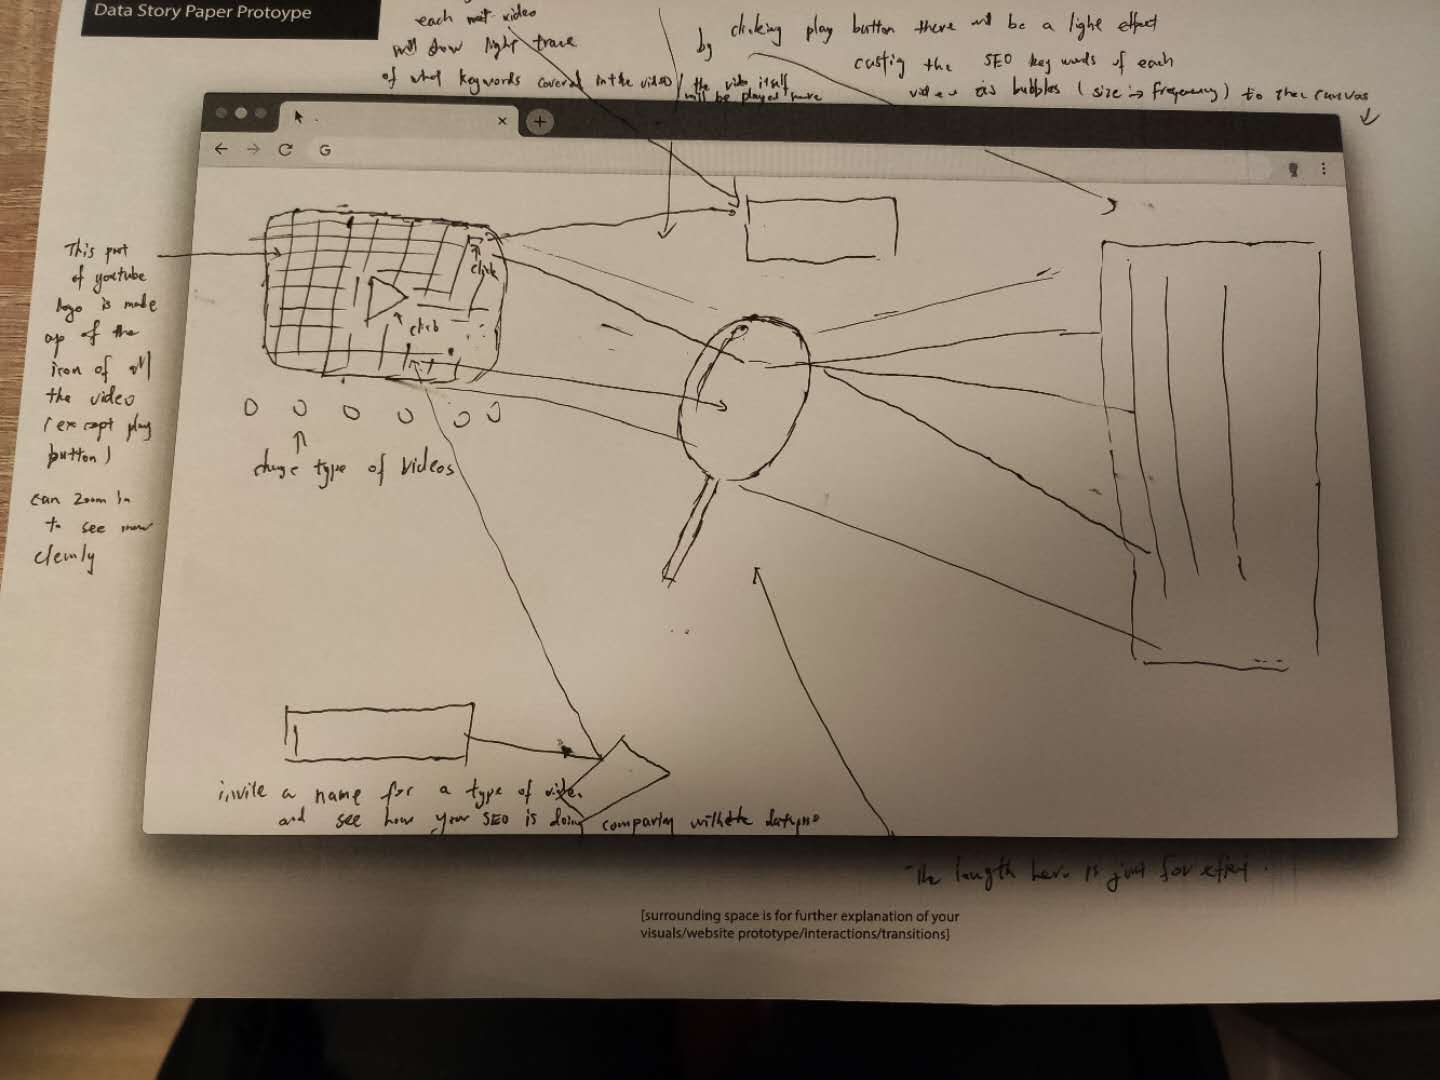 Data Story Paper Protoype
each video
will show light trace
of what keywords covered in the video
the video itself
will be played here
by clicking play button there will be a light effect
casting the SEO key words of each
video as bubbles (size → frequency) to the canvas
G
This part
of youtube
logo is made
up of the
icon of all
the video
(except play
button)
can zoom in
to see more
clearly
click
click
change type of videos
invite a name for a type of video
and see how your SEO is doing comparing with the
The length here is just for effect.
[surrounding space is for further explanation of your
visuals/website prototype/interactions/transitions]